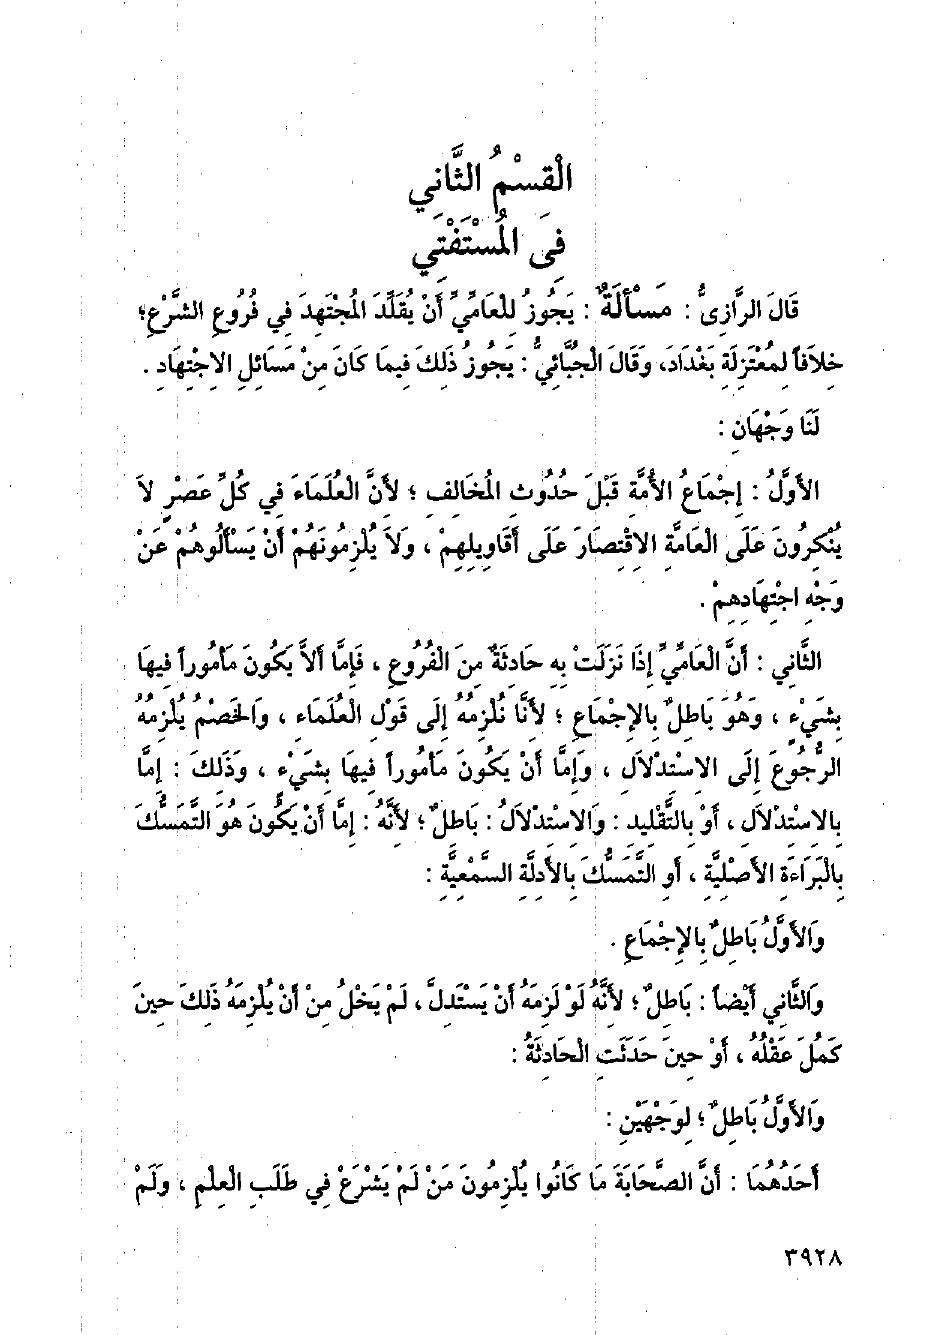 الْقِسْمُ الثَّانِي
فِي الْمُسْتَفْتِي
قَالَ الرَّازِىُّ : مَسْأَلَةٌ : يَجُوزُ لِلْعَامِّيِّ أَنْ يُقَلِّدَ الْمُجْتَهِدَ فِي فُرُوعِ الشَّرْعِ؛
خِلَافاً لِمُعْتَزِلَةِ بَغْدَادَ، وَقَالَ الْجُبَّائِيُّ : يَجُوزُ ذَلِكَ فِيمَا كَانَ مِنْ مَسَائِلِ الاجْتِهَادِ .
لَنَا وَجْهَانِ :
الأَوَّلُ : إِجْمَاعُ الأُمَّةِ قَبْلَ حُدُوثِ الْمُخَالِفِ ؛ لأَنَّ الْعُلَمَاءَ فِي كُلِّ عَصْرٍ لاَ
يُنْكِرُونَ عَلَى الْعَامَّةِ الاقْتِصَارَ عَلَى أَقَاوِيلِهِمْ ، وَلاَ يُلْزِمُونَهُمْ أَنْ يَسْأَلُوهُمْ عَنْ
وَجْهِ اجْتِهَادِهِمْ .
الثَّانِي : أَنَّ الْعَامِّيَّ إِذَا نَزَلَتْ بِهِ حَادِثَةٌ مِنَ الْفُرُوعِ ، فَإِمَّا أَلاَّ يَكُونَ مَأْمُوراً فِيهَا
بِشَيْءٍ ، وَهُوَ بَاطِلٌ بِالإِجْمَاعِ ؛ لأَنَّا نُلْزِمُهُ إِلَى قَوْلِ الْعُلَمَاءِ ، وَالْخَصْمُ يُلْزِمُهُ
الرُّجُوعَ إِلَى الاسْتِدْلاَلِ ، وَإِمَّا أَنْ يَكُونَ مَأْمُوراً فِيهَا بِشَيْءٍ ، وَذَلِكَ : إِمَّا
بِالاسْتِدْلاَلِ ، أَوْ بِالتَّقْلِيدِ : وَالاسْتِدْلاَلُ : بَاطِلٌ ؛ لأَنَّهُ : إِمَّا أَنْ يَكُونَ هُوَ التَّمَسُّكَ
بِالْبَرَاءَةِ الأَصْلِيَّةِ ، أَوِ التَّمَسُّكَ بِالأَدِلَّةِ السَّمْعِيَّةِ :
وَالأَوَّلُ بَاطِلٌ بِالإِجْمَاعِ .
وَالثَّانِي أَيْضاً : بَاطِلٌ ؛ لأَنَّهُ لَوْ لَزِمَهُ أَنْ يَسْتَدِلَّ ، لَمْ يَخْلُ مِنْ أَنْ يُلْزِمَهُ ذَلِكَ حِينَ
كَمُلَ عَقْلُهُ ، أَوْ حِينَ حَدَثَتِ الْحَادِثَةُ :
وَالأَوَّلُ بَاطِلٌ ؛ لِوَجْهَيْنِ :
أَحَدُهُمَا : أَنَّ الصَّحَابَةَ مَا كَانُوا يُلْزِمُونَ مَنْ لَمْ يَشْرَعْ فِي طَلَبِ الْعِلْمِ ، وَلَمْ
٣٩٢٨